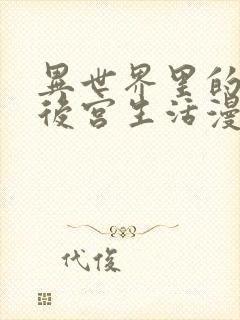 異世界里的
後宮生活漫
代俊